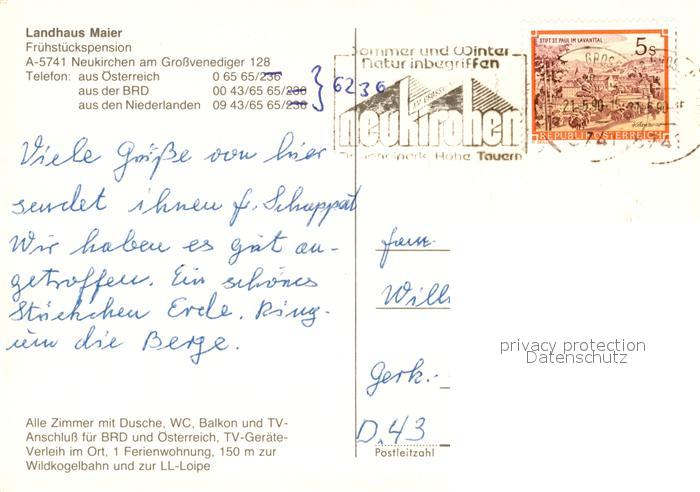 Landhaus Maier
Frühstückspension
A-5741 Neukirchen am Großvenediger 128
Telefon: aus Österreich 0 65 65/236
aus der BRD 00 43/65 65/236
aus den Niederlanden 09 43/65 65/236
6236
Sommer und Winter
Natur inbegriffen
neukirchen
Nationalpark Hohe Tauern
STIFT ST. PAUL IM LAVANTTAL
5 S
REPUBLIK ÖSTERREICH
Viele Grüße von hier
sendet ihnen fr. Schappat
Wir haben es gut an-
getroffen. Ein schönes
Stückchen Erde. Ring-
um die Berge.
fam.
Will
Gerh.-
D.43
Postleitzahl
privacy protection
Datenschutz
Alle Zimmer mit Dusche, WC, Balkon und TV-
Anschluß für BRD und Österreich, TV-Geräte-
Verleih im Ort, 1 Ferienwohnung, 150 m zur
Wildkogelbahn und zur LL-Loipe